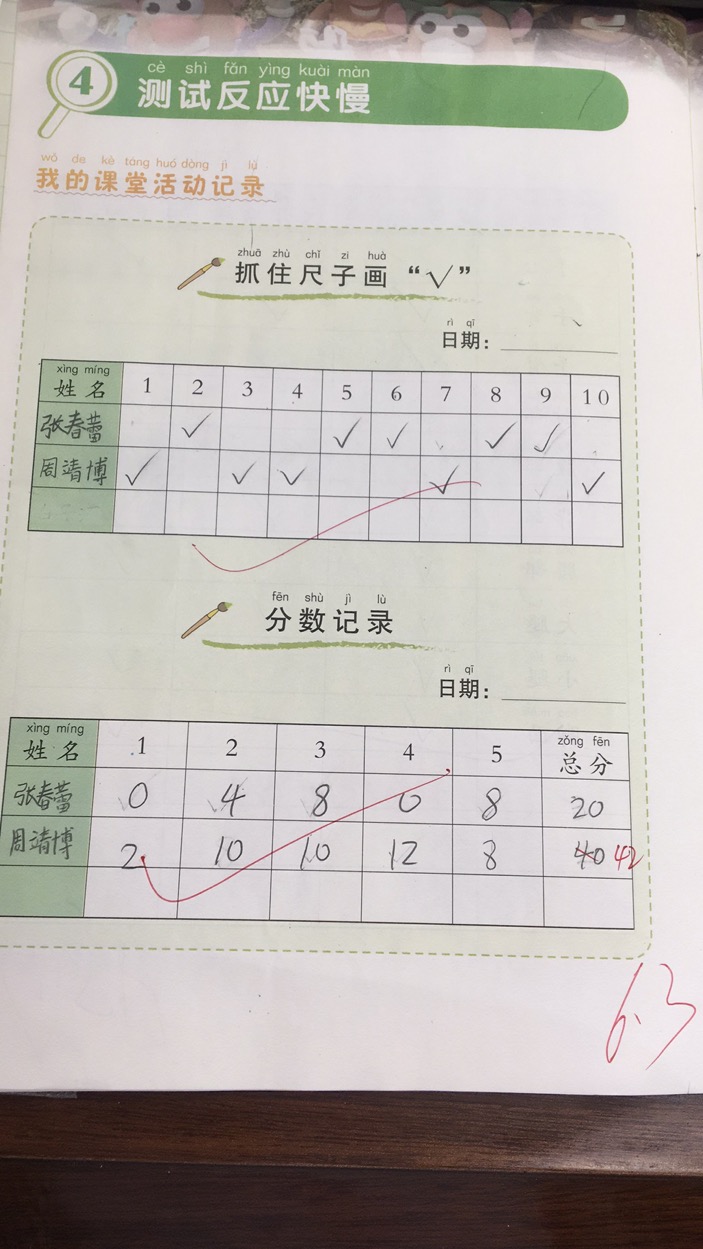 cè shì fǎn yìng kuài màn
4 测试反应快慢
wǒ de kè táng huó dòng jì lù
我的课堂活动记录
zhuā zhù chǐ zi huà
抓住尺子画“√”
rì qī
日期：
xìng míng
姓名 1 2 3 4 5 6 7 8 9 10
张春蕾 ✓ ✓ ✓ ✓ ✓
周靖博 ✓ ✓ ✓ ✓ ✓
fēn shù jì lù
分数记录
rì qī
日期：
xìng míng zǒng fēn
姓名 1 2 3 4 5 总分
张春蕾 0 4 8 0 8 20
周靖博 2 10 10 12 8 40 42
6.3